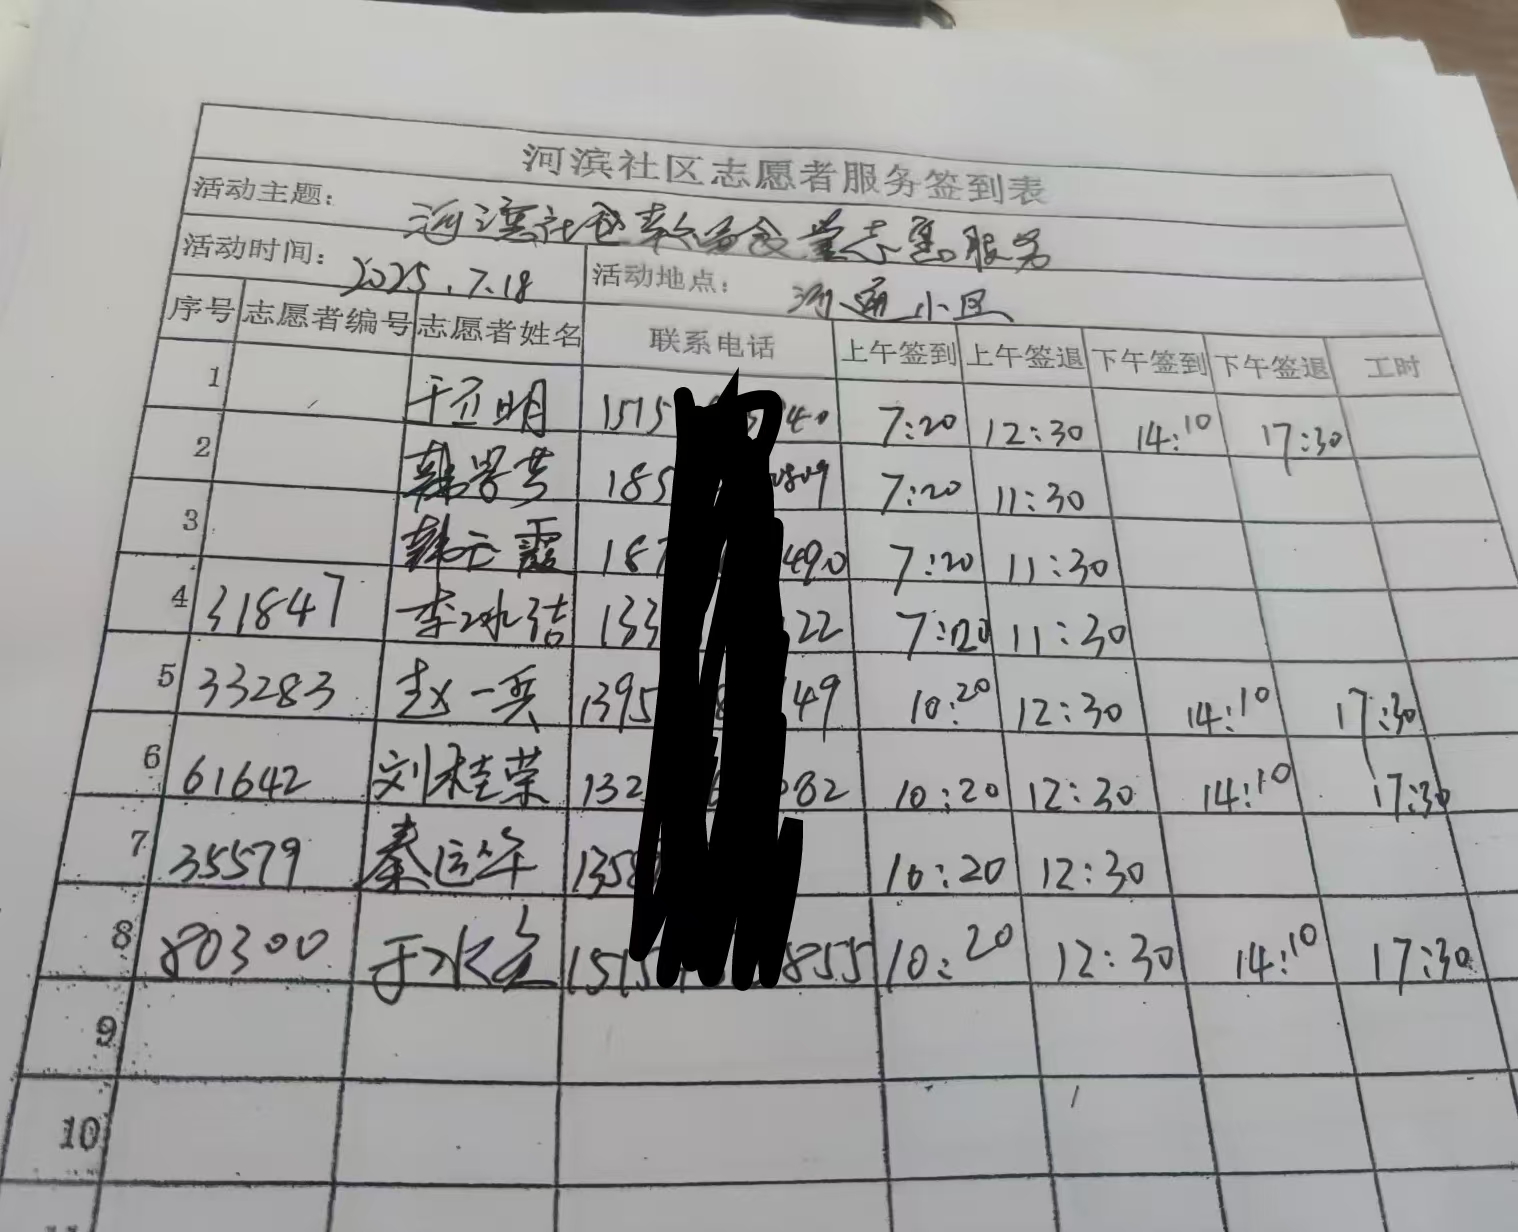 河滨社区志愿者服务签到表
活动主题: 河滨社区 食堂志愿服务
活动时间: 2025.7.18 活动地点: 河通小区
序号 志愿者编号 志愿者姓名 联系电话 上午签到 上午签退 下午签到 下午签退 工时
1 明 1515 40 7:20 12:30 14:10 17:30
2 韩 185 0809 7:20 11:30
3 韩云霞 187 490 7:20 11:30
4 31847 李冰洁 133 122 7:20 11:30
5 33283 赵一兵 1395 149 10:20 12:30 14:10 17:30
6 61642 刘桂荣 132 082 10:20 12:30 14:10 17:30
7 35579 秦运华 1358 10:20 12:30
8 80300 于 1515 855 10:20 12:30 14:10 17:30
9
10